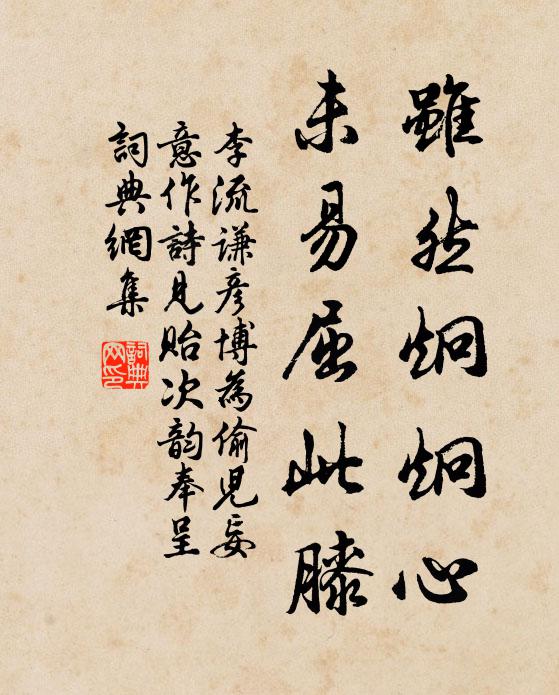 雖然炯炯心
未易屈此膝
李流謙彦博為偷兒妄
意作詩見貽次韵奉呈
詞典網集
詞典网印